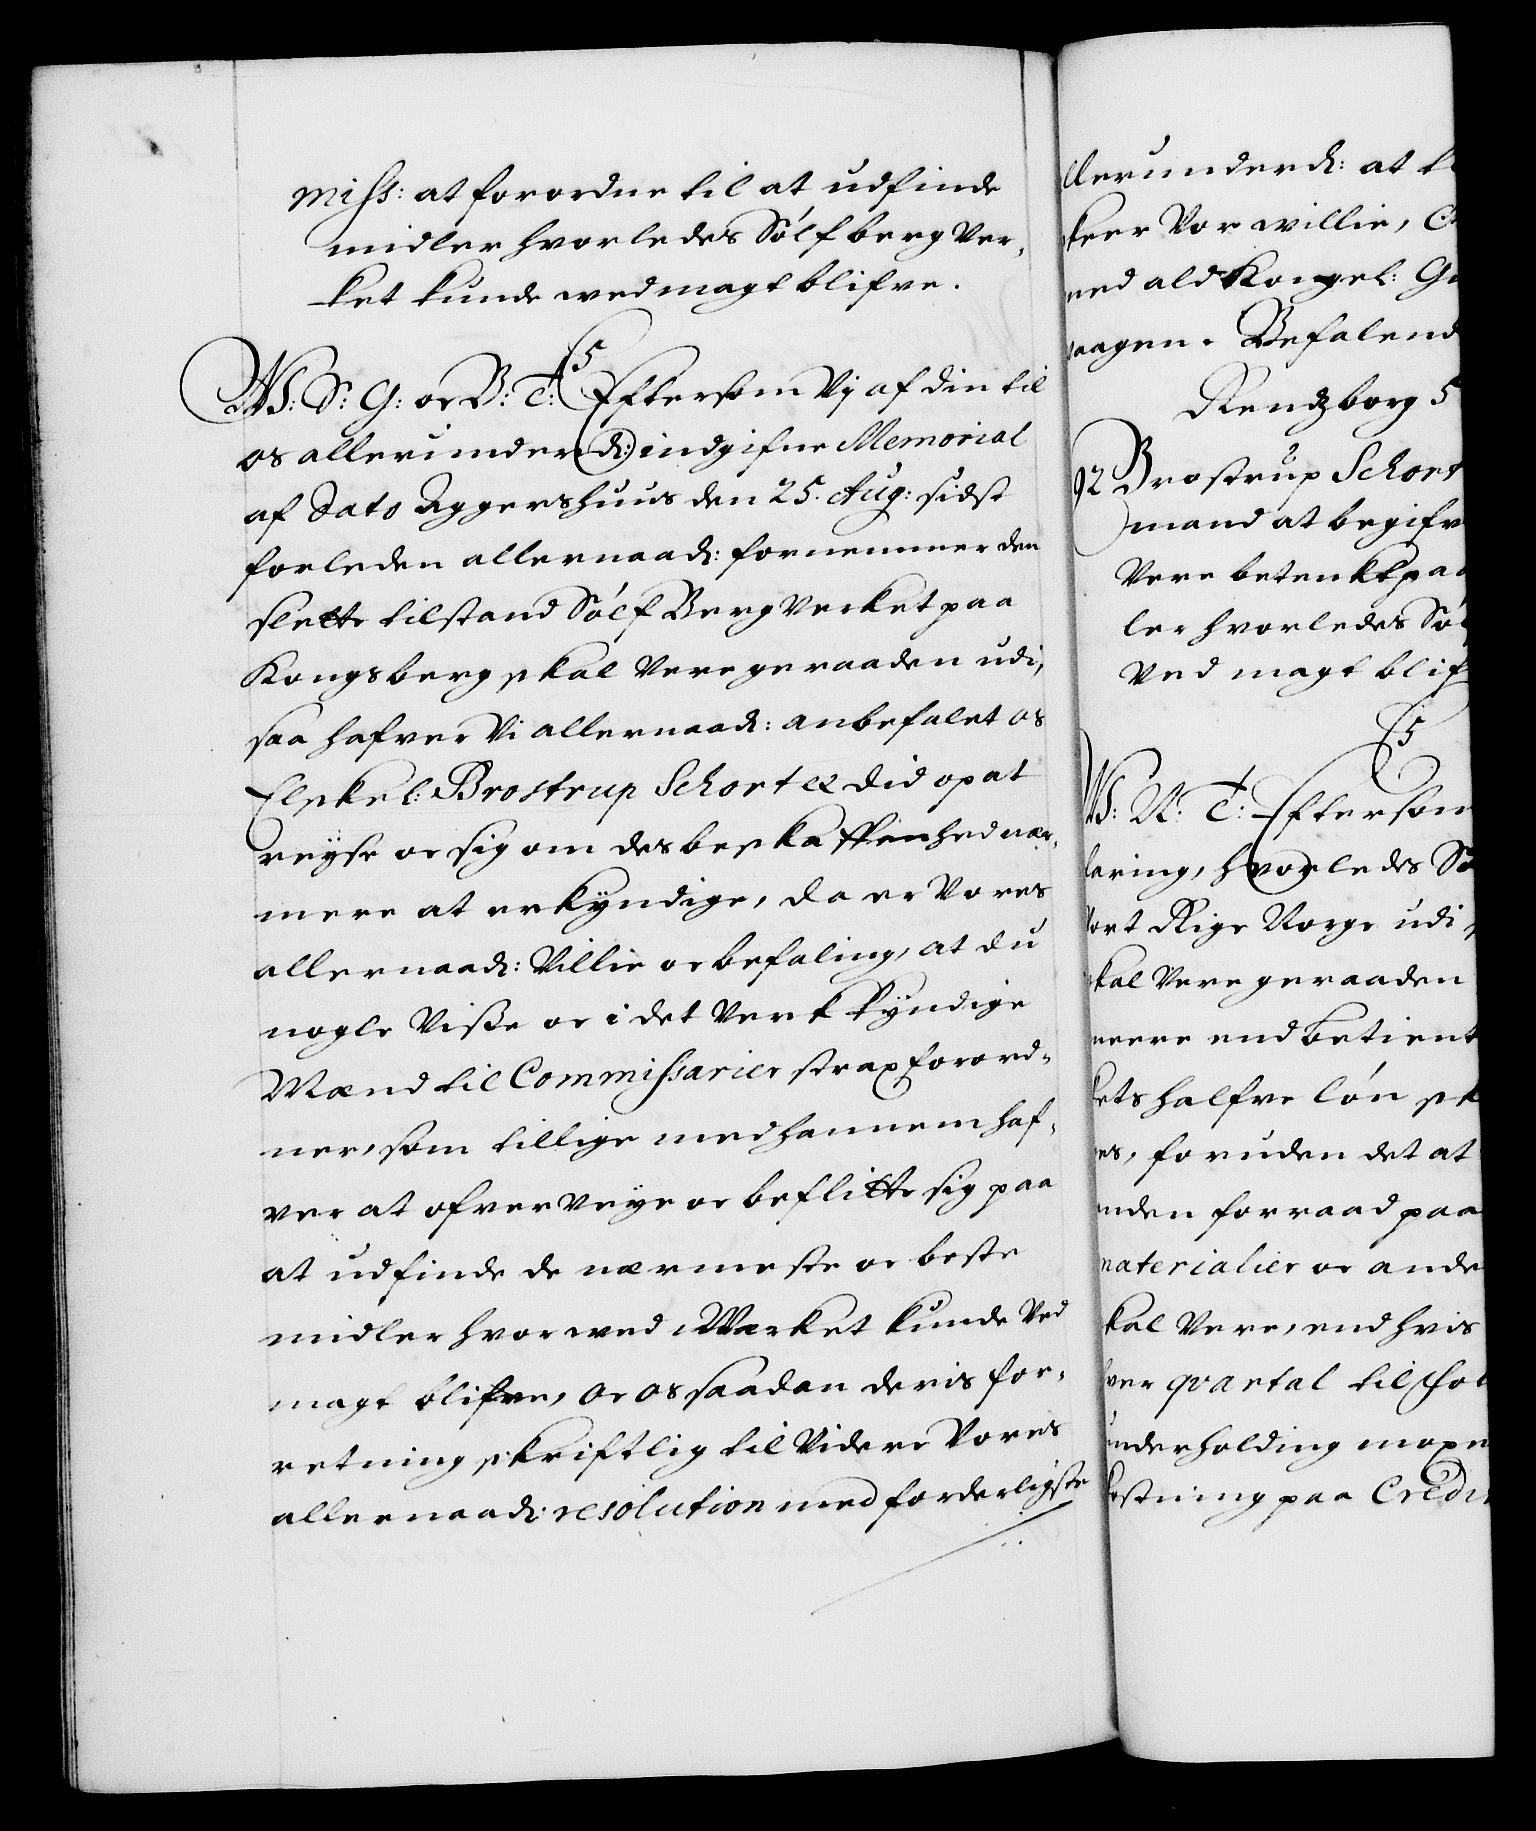 miss: at forordne til at udfinde
midler hvorledes Sølfberg Ver-
ket kunde ved magt blifve.
C5
W: S: G: oc B: T: Eftersom Vj af din til
os allerunderd: indgifne Memorial
af Dato Aggershuus den 25. Aug: sidst
forleden allernaad: fornemmer den
slette tilstand Sølf BergVerket paa
Kongsberg skal Vere geraaden udi,
saa hafver Vi allernaad: anbefalet os
Elskel: Brostrup Schort & did op at
reyse oc sig om des beskaffenhed nær-
mere at erkyndige, da er Vores
allernaad: Villie oc befaling, at du
nogle Visse oc i det Verk kyndige
Mænd til Commissarier strax forord-
ner, som tillige med hannem haf-
ver at ofverveye oc beflitte sig paa
at udfinde de nærmeste oc beste
midler hvorved Værket kunde Ved
magt blifve, oc os saadan deris for-
retning skriftlig til Videre Vores
allernaad: resolution med forderligste
llerunderd: at
keer Vor willie,
med ald Kongel:
vaagen. Befalend
Rendzborg 5
92 Brostrup Schort
mand at begifv
Vere betenkt paa
ler hvorledes Søl
Ved magt blif
C5
W: N: T: Eftersom
laring, hvorledes Sø
Vort Rige Norge udi
skal Vere geraaden
meere end betient
kets halfve løn sk
es, foruden det at
nden forraad paa
materialier oc ande
skal Vere, end hvis
hver qvartal til fol
underholding
kostning paa Credi